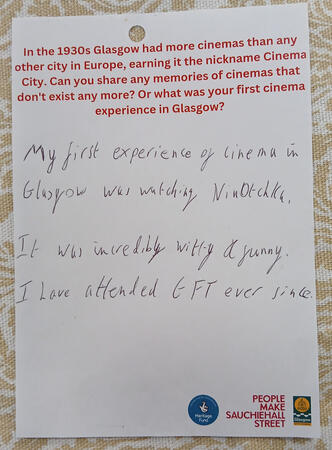 In the 1930s Glasgow had more cinemas than any
other city in Europe, earning it the nickname Cinema
City. Can you share any memories of cinemas that
don't exist any more? Or what was your first cinema
experience in Glasgow?
My first experience of cinema in
Glasgow was watching NinOtchka.
It was incredibly witty & funny.
I have attended GFT ever since.
Heritage
Fund
PEOPLE
MAKE
SAUCHIEHALL
STREET
Glasgow